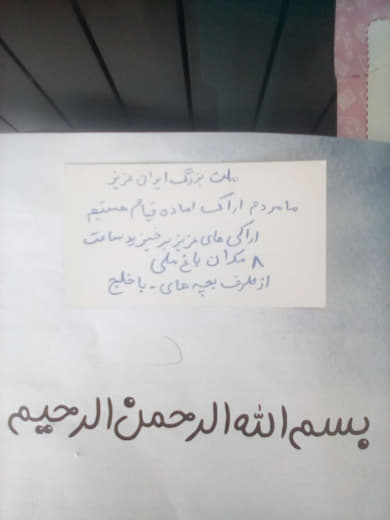 ملت بزرگ ایران عزیز
ما مردم اراک اماده قیام هستیم
اراکی های عزیز برخیزید ساعت
۸ مکان باغ ملی
از طرف بچه های - با خلج
بسم الله الرحمن الرحیم